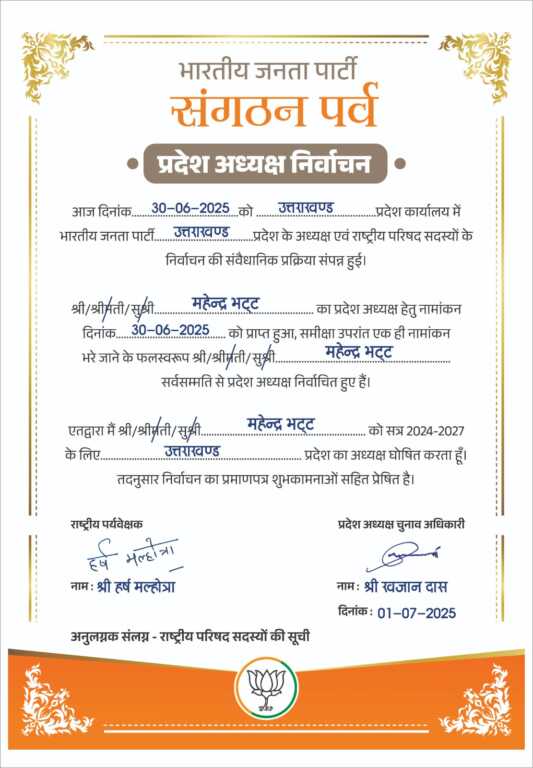 भारतीय जनता पार्टी
संगठन पर्व
प्रदेश अध्यक्ष निर्वाचन
आज दिनांक.....30-06-2025...को .....उत्तराखण्ड.....प्रदेश कार्यालय में
भारतीय जनता पार्टी.....उत्तराखण्ड.....प्रदेश के अध्यक्ष एवं राष्ट्रीय परिषद सदस्यों के
निर्वाचन की संवैधानिक प्रक्रिया संपन्न हुई।
श्री/श्रीमती/सुश्री.....महेन्द्र भट्ट..... का प्रदेश अध्यक्ष हेतु नामांकन
दिनांक.....30-06-2025..... को प्राप्त हुआ, समीक्षा उपरांत एक ही नामांकन
भरे जाने के फलस्वरूप श्री/श्रीमती/सुश्री.....महेन्द्र भट्ट.....
सर्वसम्मति से प्रदेश अध्यक्ष निर्वाचित हुए हैं।
एतद्वारा मैं श्री/श्रीमती/सुश्री.....महेन्द्र भट्ट..... को सत्र 2024-2027
के लिए.....उत्तराखण्ड..... प्रदेश का अध्यक्ष घोषित करता हूँ।
तदनुसार निर्वाचन का प्रमाणपत्र शुभकामनाओं सहित प्रेषित है।
राष्ट्रीय पर्यवेक्षक
प्रदेश अध्यक्ष चुनाव अधिकारी
हर्ष मल्होत्रा
नाम : श्री हर्ष मल्होत्रा
नाम : श्री खजान दास
दिनांक : 01-07-2025
अनुलग्नक संलग्न - राष्ट्रीय परिषद सदस्यों की सूची
भाजपा